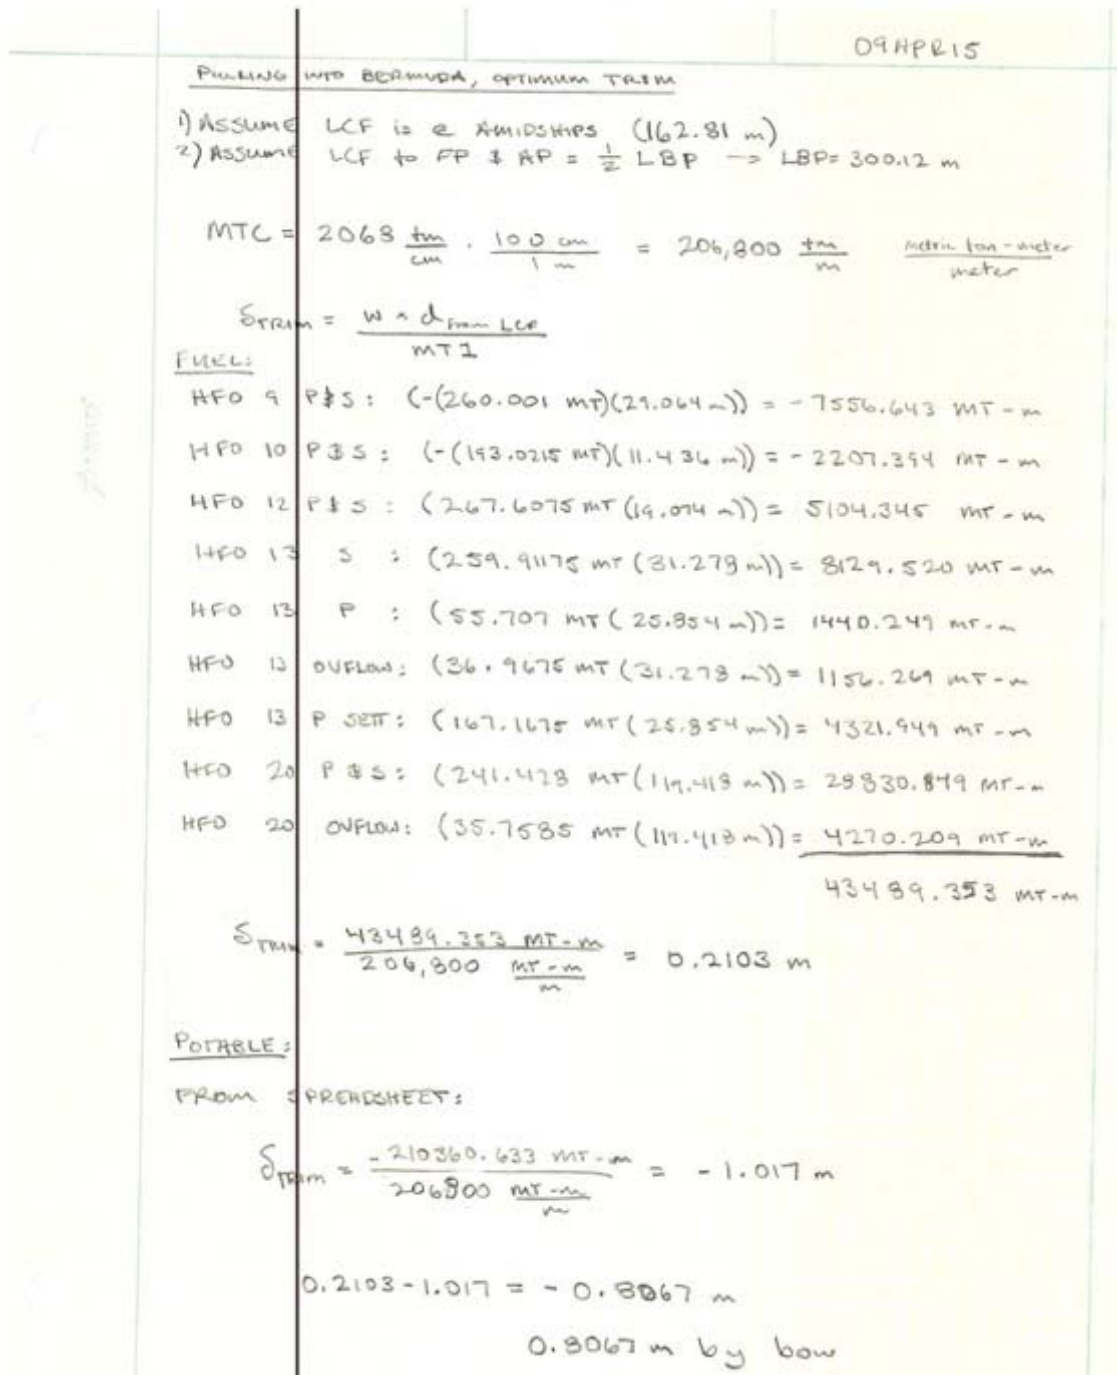 09APR15
PULLING INTO BERMUDA, OPTIMUM TRIM
1) ASSUME LCF is @ AMIDSHIPS (162.81 m)
2) ASSUME LCF to FP & AP = 1/2 LBP -> LBP= 300.12 m
MTC = 2068 tm/cm · 100 cm/1 m = 206,800 tm/m metric ton-meter/meter
δTRIM = w × d from LCF / MT1
FUEL:
HFO 9 P&S: (-(260.001 MT)(29.064 m)) = -7556.643 MT-m
HFO 10 P&S: (-(193.0215 MT)(11.436 m)) = -2207.394 MT-m
HFO 12 P&S: (267.6075 MT (19.074 m)) = 5104.345 MT-m
HFO 13 S : (259.91175 MT (31.278 m)) = 8129.520 MT-m
HFO 13 P : (55.707 MT (25.854 m)) = 1440.249 MT-m
HFO 13 OVFLOW: (36.9675 MT (31.278 m)) = 1156.269 MT-m
HFO 13 P SETT: (167.1675 MT (25.854 m)) = 4321.949 MT-m
HFO 20 P&S: (241.428 MT (119.418 m)) = 28830.849 MT-m
HFO 20 OVFLOW: (35.7585 MT (119.418 m)) = 4270.209 MT-m
43489.353 MT-m
δTRIM = 43489.353 MT-m / 206,800 MT-m/m = 0.2103 m
POTABLE:
FROM SPREADSHEET:
δTRIM = -210360.633 MT-m / 206800 MT-m/m = -1.017 m
0.2103-1.017 = -0.8067 m
0.8067 m by bow